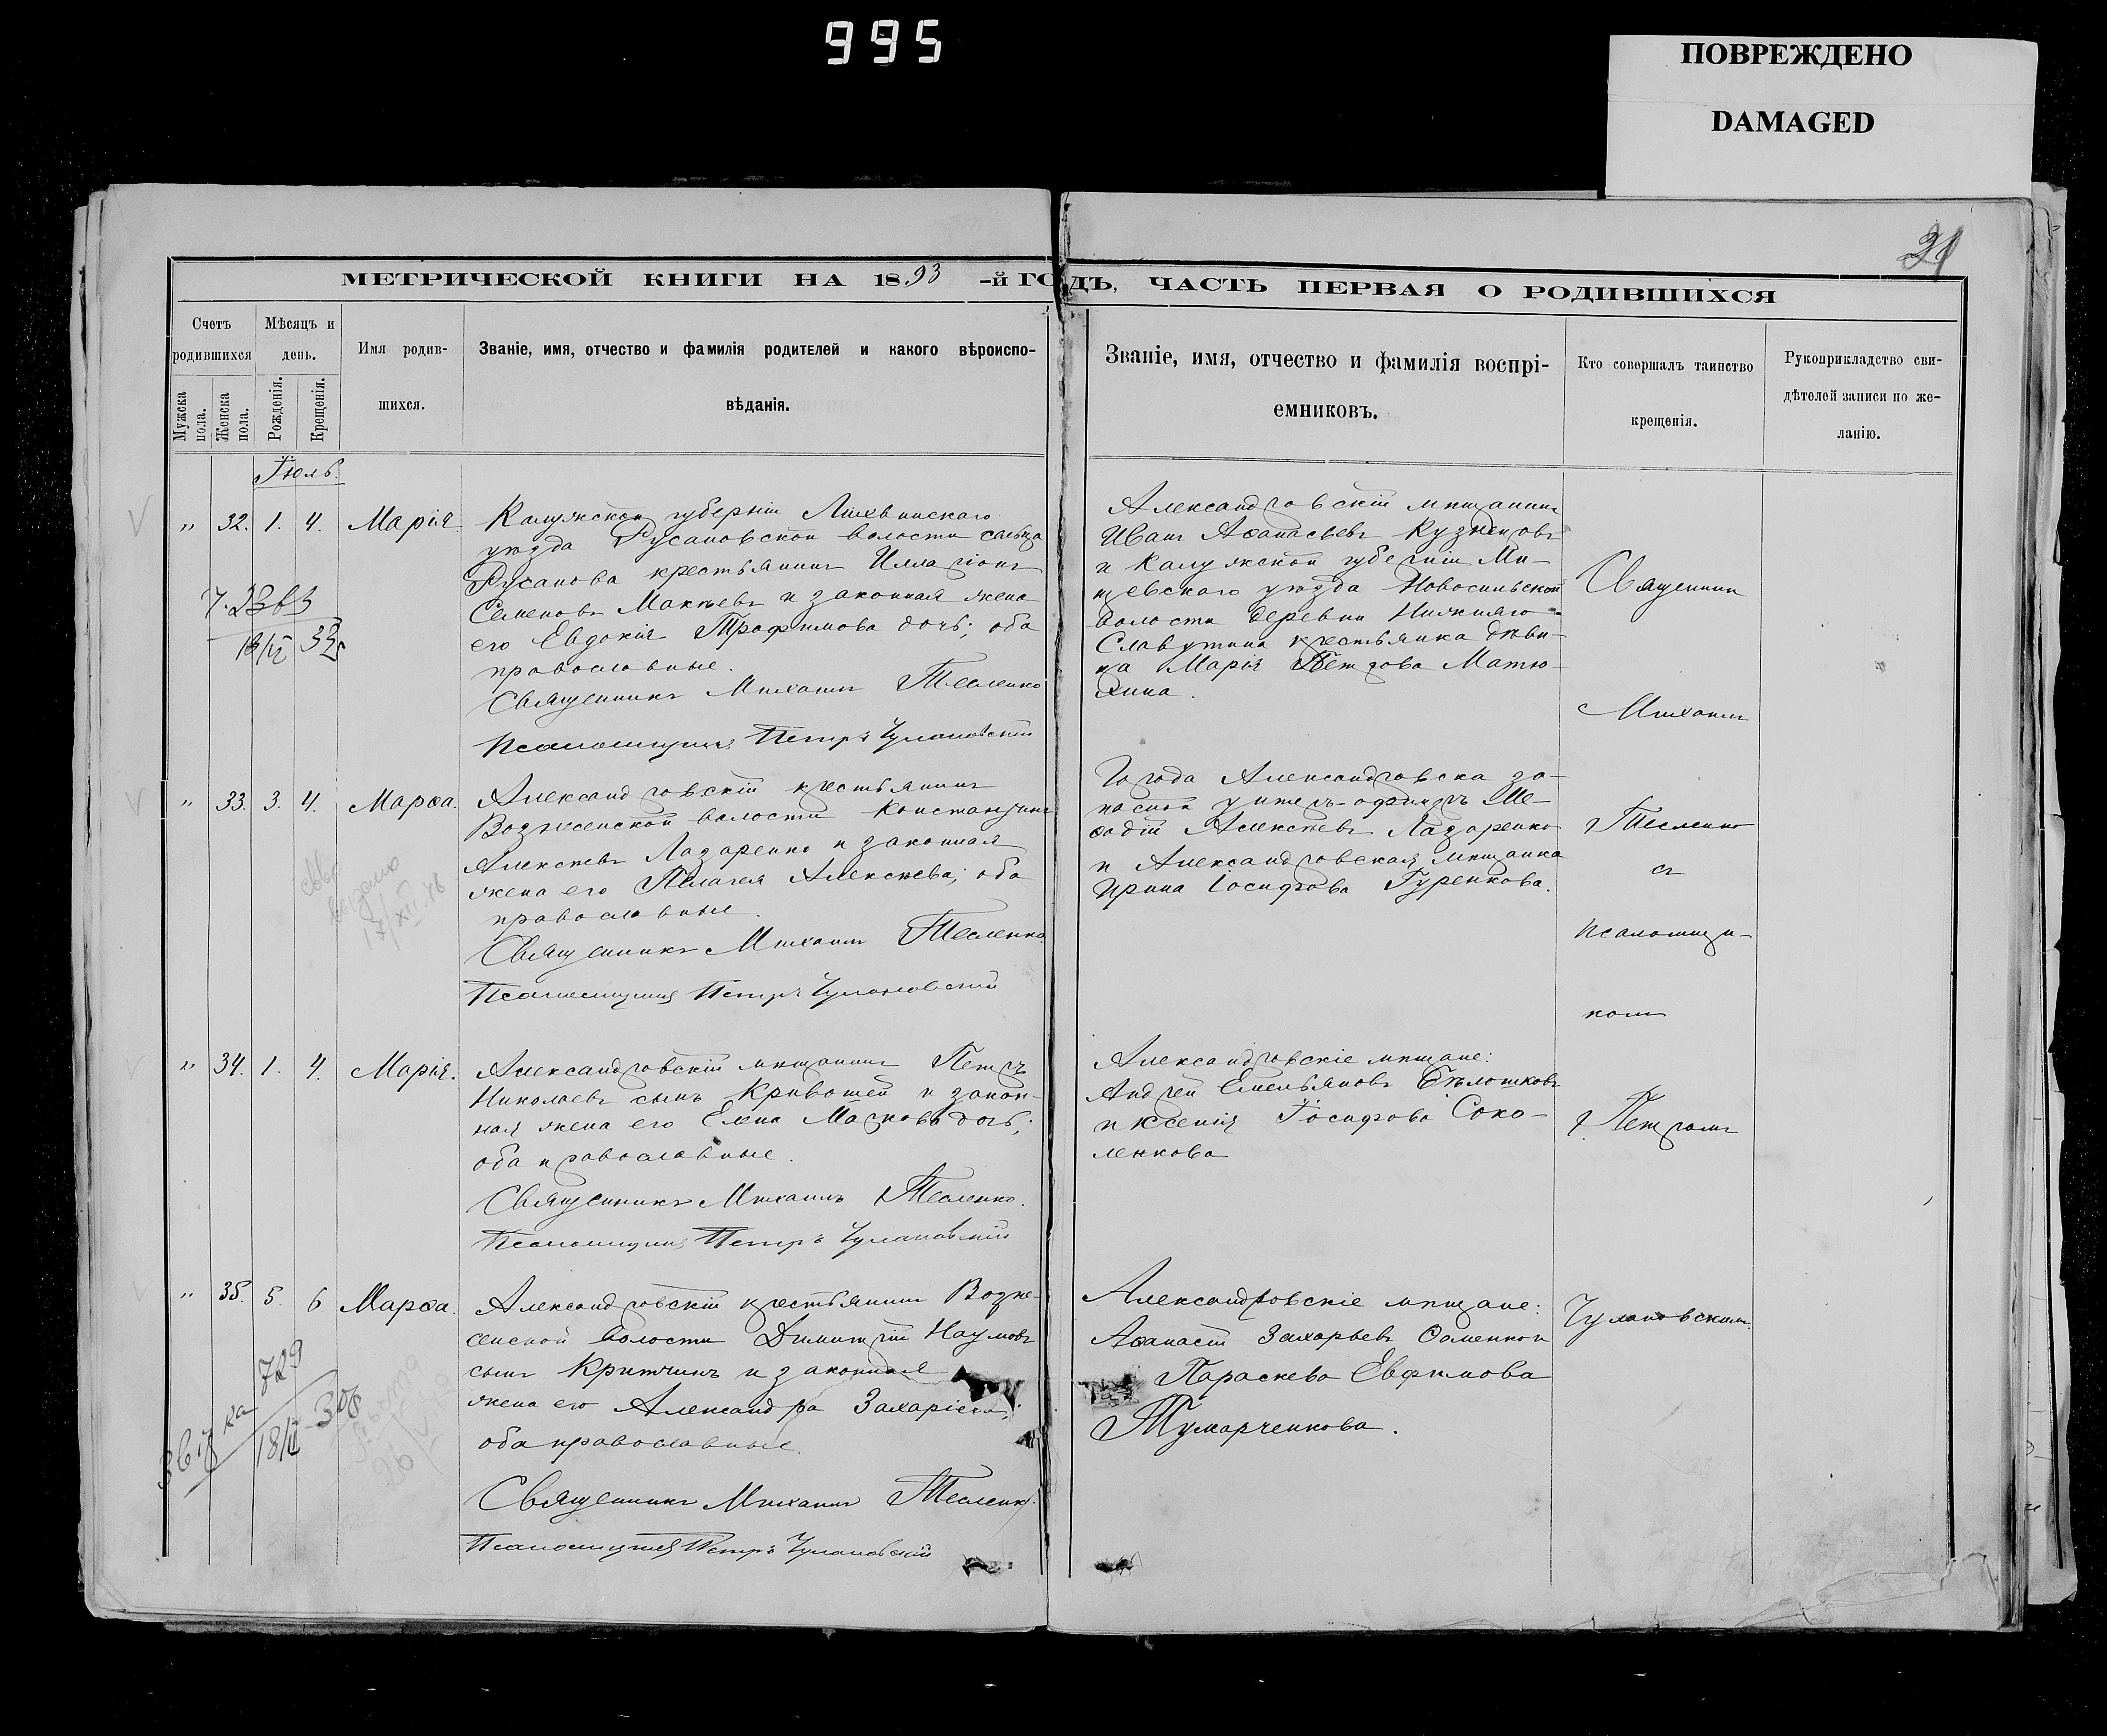 995
ПОВРЕЖДЕНО
DAMAGED
31
МЕТРИЧЕСКОЙ КНИГИ НА 1893 -й ГОДЪ, ЧАСТЬ ПЕРВАЯ О РОДИВШИХСЯ
Счетъ родившихся
Мужска пола.
Женска пола.
Мѣсяцъ и день.
Рожденія.
Крещенія.
Имя родив-
шихся.
Званіе, имя, отчество и фамилія родителей и какого вѣроиспо-
вѣданія.
Званіе, имя, отчество и фамилія воспрі-
емниковъ.
Кто совершалъ таинство
крещенія.
Рукоприкладство сви-
дѣтелей записи по же-
ланію.
Іюль.
" 32. 1. 4. Марія.
Калужской губерніи Лихвинскаго
уѣзда Русановской волости сельца
Русанова крестьянинъ Илларіонъ
Семеновъ Макѣевъ и законная жена
его Евдокія Трофимова дочь; оба
православные.
Священникъ Михаилъ Тесленко
Псаломщикъ Петръ Чулановскій
Александровскій мѣщанинъ
Иванъ Аѳанасьевъ Кузнецовъ
и Калужской губерніи Ми-
щевскаго уѣзда Новосильской
волости деревни Нижняго-
Славутина крестьянка дѣви-
ца Марія Петрова Матю-
хина.
" 33. 3. 4. Марѳа.
Александровскій крестьянинъ
Вознесенской волости Константинъ
Алексѣевъ Лазаренко и законная
жена его Пелагея Алексѣева; оба
православные.
Священникъ Михаилъ Тесленко
Псаломщикъ Петръ Чулановскій
Города Александровска за-
пасной унтеръ-офицеръ Ме-
ѳодій Алексѣевъ Лазаренко
и Александровская мѣщанка
Ирина Іосифова Гуренкова.
" 34. 1. 4. Марія.
Александровскій мѣщанинъ Петръ
Николаевъ сынъ Кривошей и закон-
ная жена его Елена Маркова дочь;
оба православные.
Священникъ Михаилъ Тесленко.
Псаломщикъ Петръ Чулановскій
Александровскіе мѣщане:
Андрей Емельяновъ Бѣлошковъ
и Ксенія Іосифова Соко-
ленкова
" 35. 5. 6 Марѳа.
Александровскій крестьянинъ Возне-
сенской волости Димитрій Наумовъ
сынъ Критчинъ и законная
жена его Александра Захаріева;
оба православные.
Священникъ Михаилъ Тесленко.
Псаломщикъ Петръ Чулановскій
Александровскіе мѣщане:
Аѳанасій Захарьевъ
Параскева Евфимова
Тумарченкова.
Священник
Михаилъ
Тесленко
съ
псаломщи-
комъ
Петромъ
Чулановскимъ.
729
18/II